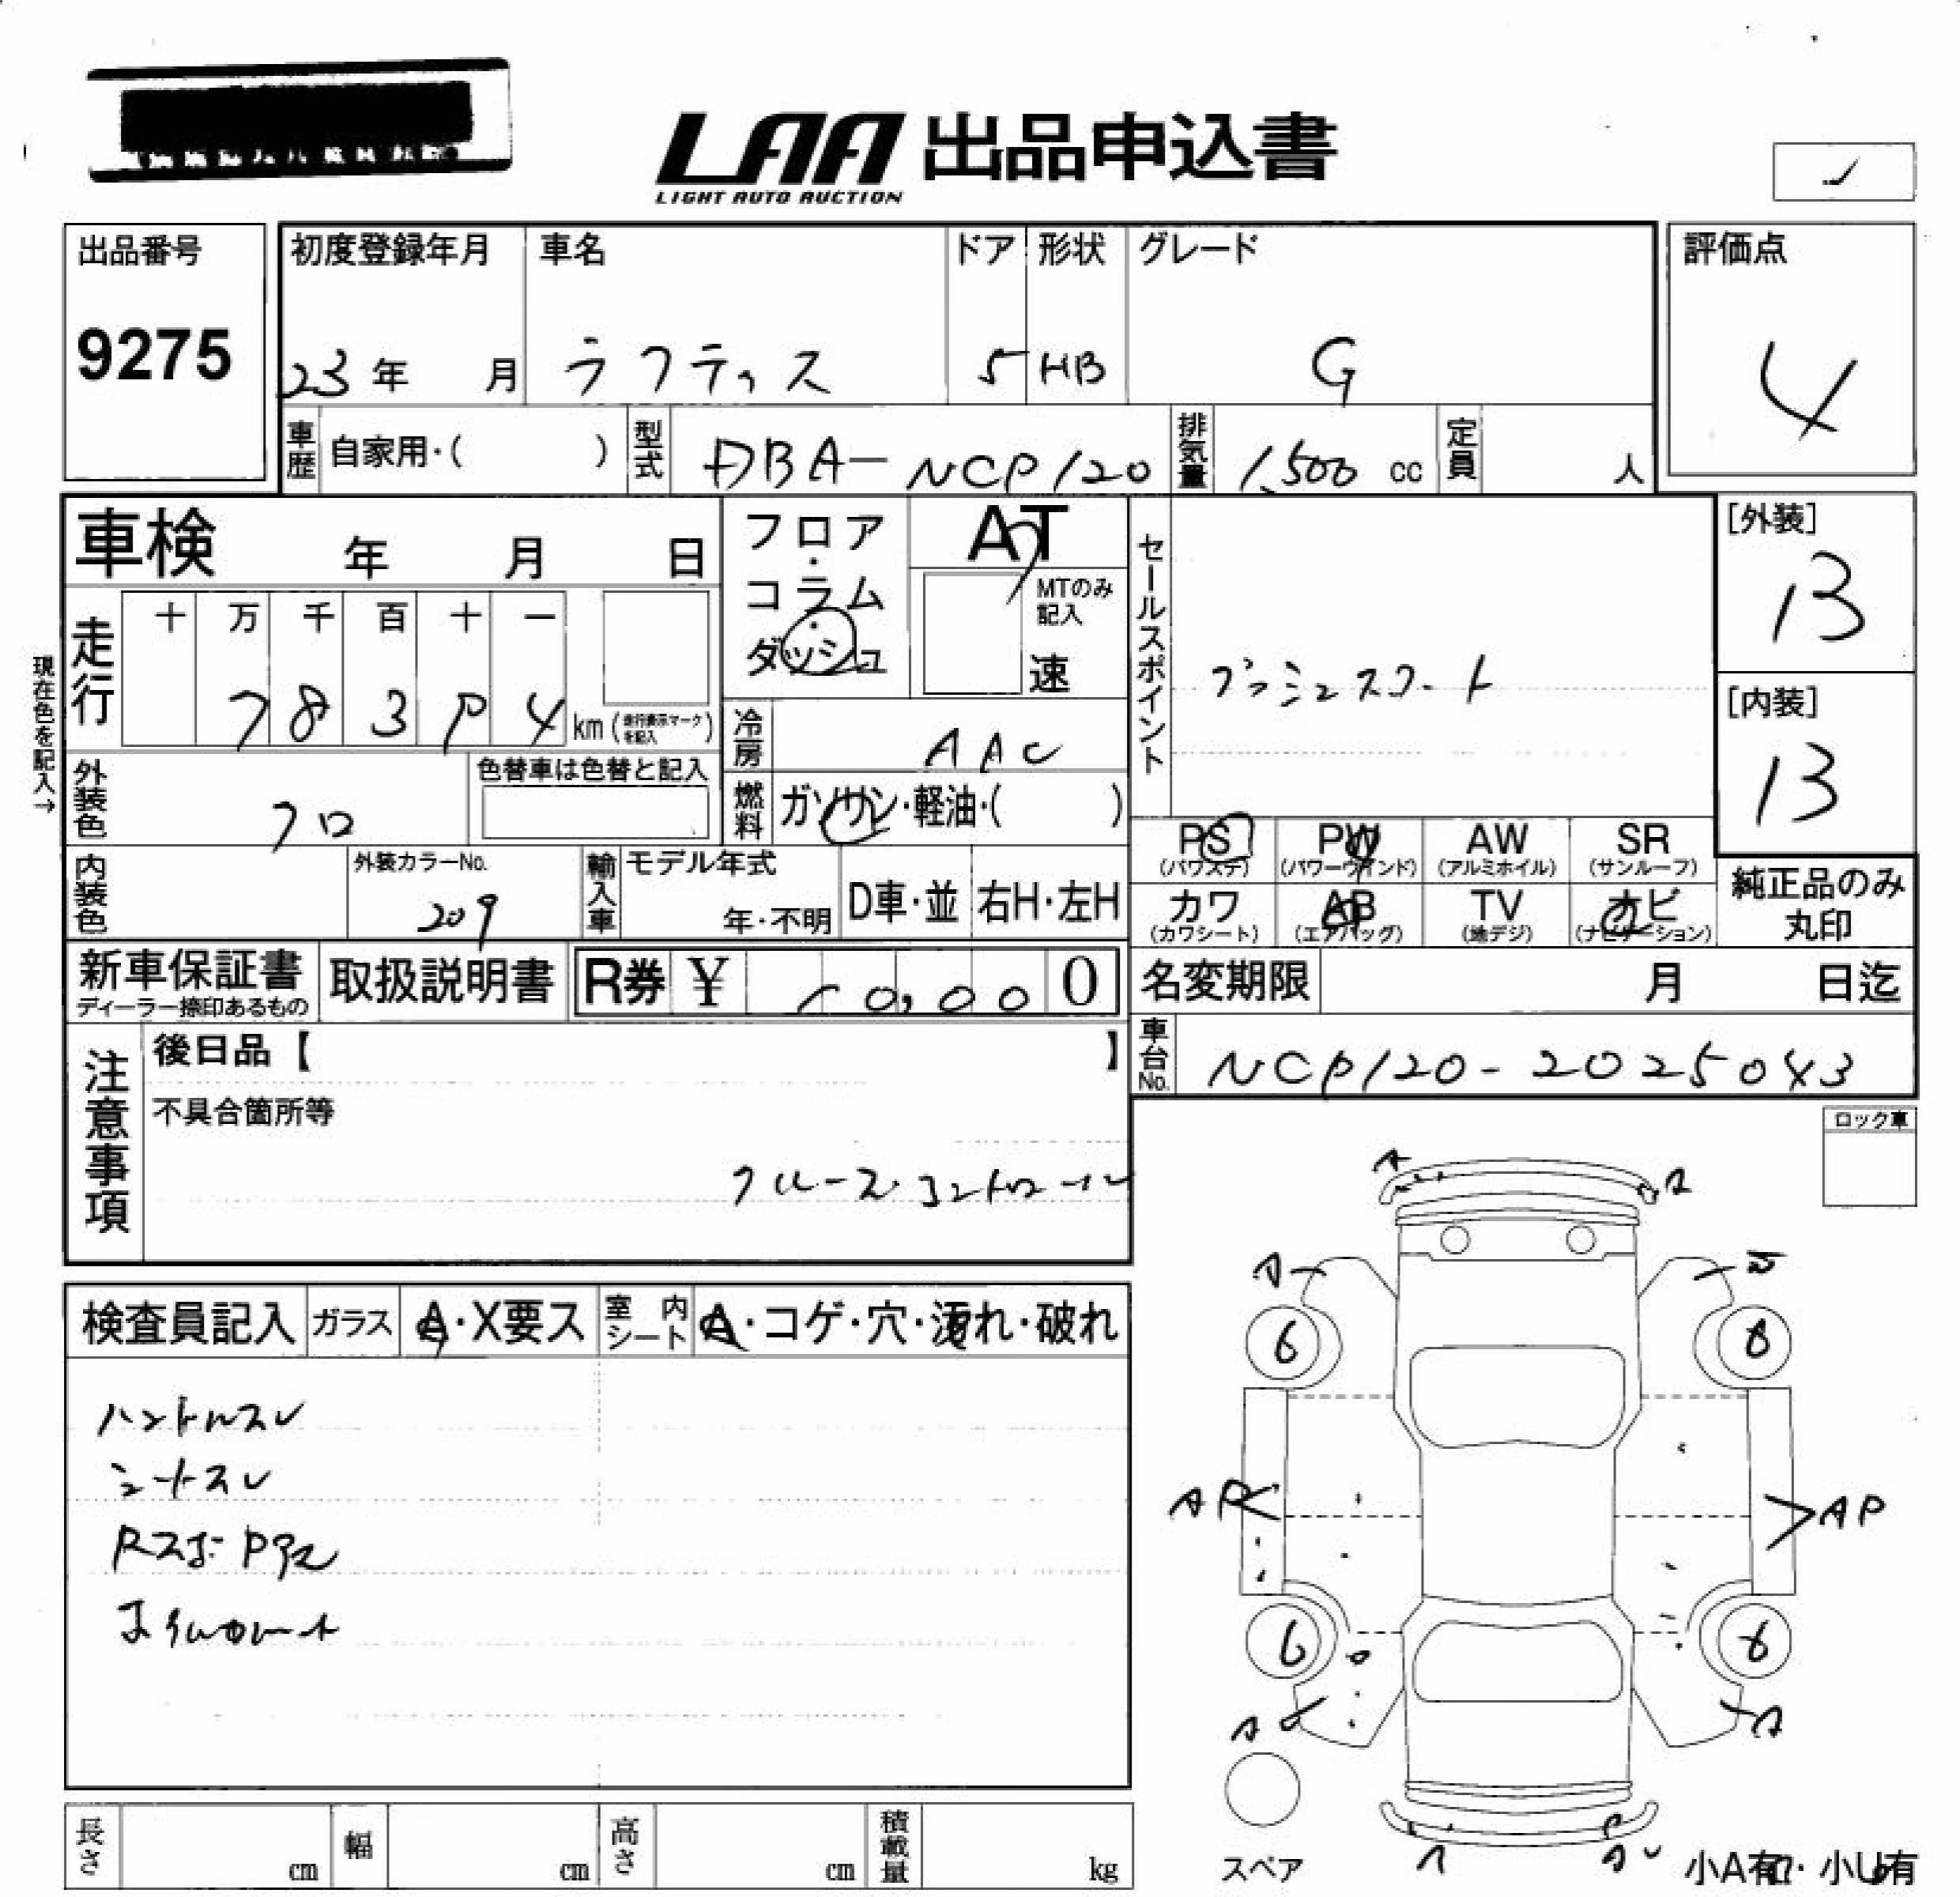 LAA 出品申込書
LIGHT AUTO AUCTION
出品番号
9275
初度登録年月 車名 ドア 形状 グレード
23年 月 ラクティス 5 HB G
評価点
4
車歴 自家用・( ) 型式 DBA-NCP120 排気量 1,500 cc 定員 人
車検 年 月 日
フロア・コラム・ダッシュ
AT
MTのみ記入
速
セールスポイント
プッシュスタート
[外装]
13
[内装]
13
現在色を記入→
走行 十 万 千 百 十 一
7 8 3 9 4 km (走行表示マークを記入)
冷房 AAC
外装色 クロ
色替車は色替と記入
燃料 ガソリン・軽油・( )
PS (パワステ) PW (パワーウインド) AW (アルミホイル) SR (サンルーフ)
カワ (カワシート) AB (エアバッグ) TV (地デジ) ナビ (ナビゲーション)
純正品のみ丸印
内装色
外装カラーNo.
209
輸入車 モデル年式
年・不明
D車・並 右H・左H
新車保証書
ディーラー捺印あるもの
取扱説明書
R券 ¥ 10,000
名変期限 月 日迄
車台No. NCP120-2025043
注意事項
後日品【 】
不具合箇所等
クルーズコントロール
ロック車
検査員記入 ガラス A・X要ス 室内シート A・コゲ・穴・汚れ・破れ
ハンドルスレ
シートスレ
A A
A
6 8
AP AP
6
A A
A
スペア
小A有・小U有
長さ cm 幅 cm 高さ cm 積載量 kg